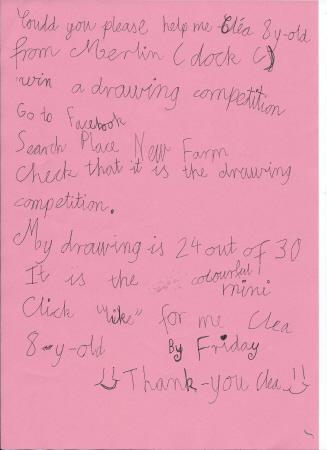 Could you please help me Cléa 8 y-old
from Merlin (dock C)
win a drawing competition
Go to Facebook
Search Place New Farm
Check that it is the drawing
competition.
My drawing is 24 out of 30
It is the colourful mini
Click "like" for me Clea
8-y-old By Friday
Thank-you Clea